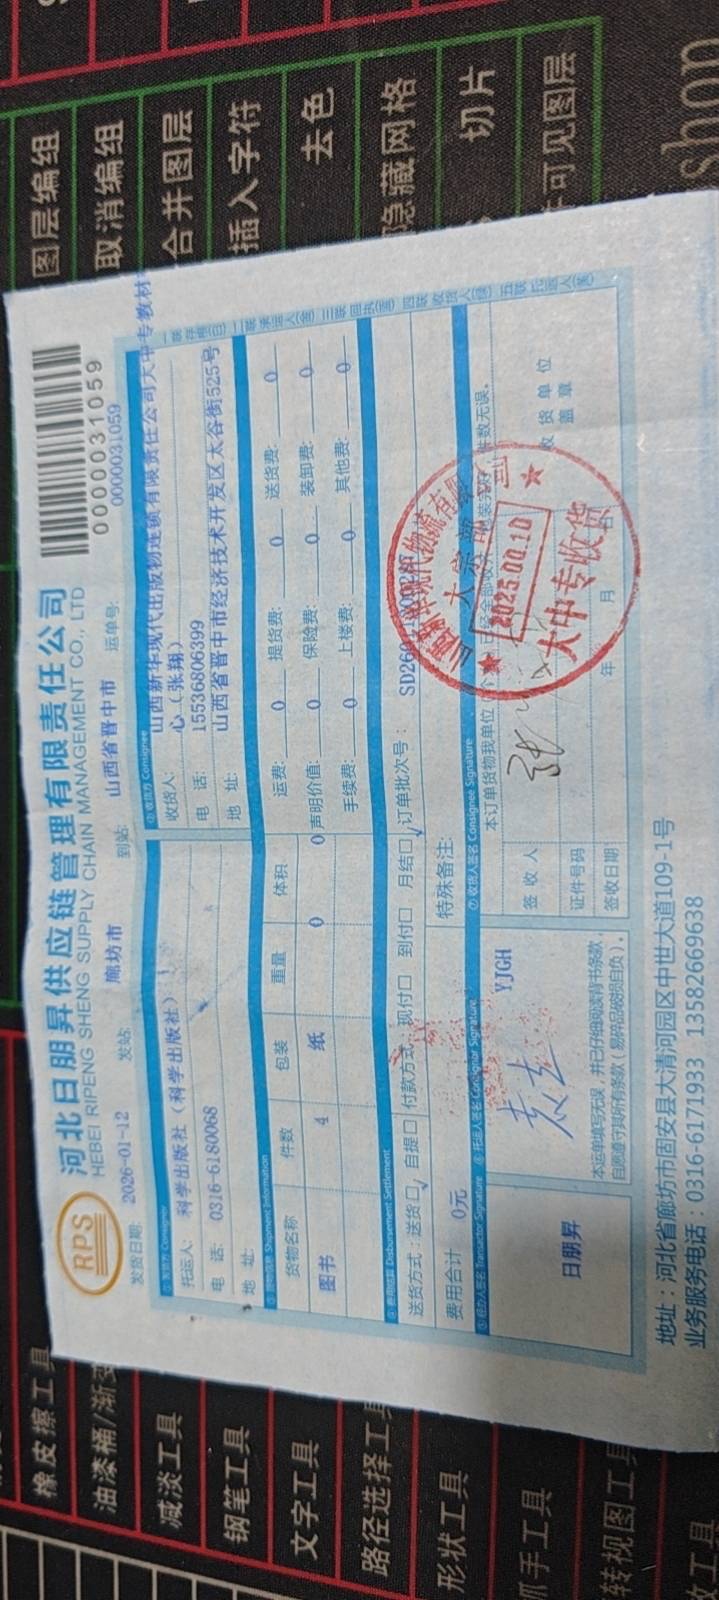 RPS
河北日朋昇供应链管理有限责任公司
HEBEI RIPENG SHENG SUPPLY CHAIN MANAGEMENT CO., LTD
0000031059
发货日期: 2026-01-12 发站: 廊坊市 到站: 山西省晋中市 运单号: 0000031059
①发货方 Consignor
托运人: 科学出版社（科学出版社）
电 话: 0316-6180068
地 址:
②收货方 Consignee
收货人: 山西新华现代出版物连锁有限责任公司大中专教材
心（张翔）
电 话: 15536806399
地 址: 山西省晋中市经济技术开发区太谷街525号
③货物信息 Shipment Information
货物名称 件数 包装 重量 体积
图书 4 纸 0 0
运费: 0 提货费: 0 送货费: 0
声明价值: 0 保险费: 0 装卸费: 0
手续费: 0 上楼费: 0 其他费: 0
④费用结算 Disbursement Settlement
送货方式: 送货□√ 自提□ 付款方式: 现付□ 到付□ 月结□√ 订单批次号:
费用合计 0元
特殊备注:
⑤经办人签名 Transactor Signature
日朋昇
⑥托运人签名 Consignor Signature
YJGH
本运单填写无误，并已仔细阅读背书条款，
自愿遵守其所有条款（易碎品破损自负）。
⑦收货人签名 Consignee Signature
本订单货物我单位
件数无误。
签 收 人
证件号码
签收日期 年 月
收货单位
盖 章
大宗部
大中专收货
地址：河北省廊坊市固安县大清河园区中世大道109-1号
业务服务电话：0316-6171933 13582669638
图层编组
取消编组
合并图层
插入字符
去色
隐藏网格
切片
可见图层
橡皮擦工具
油漆桶/渐变
减淡工具
钢笔工具
文字工具
路径选择工具
形状工具
抓手工具
转视图工具